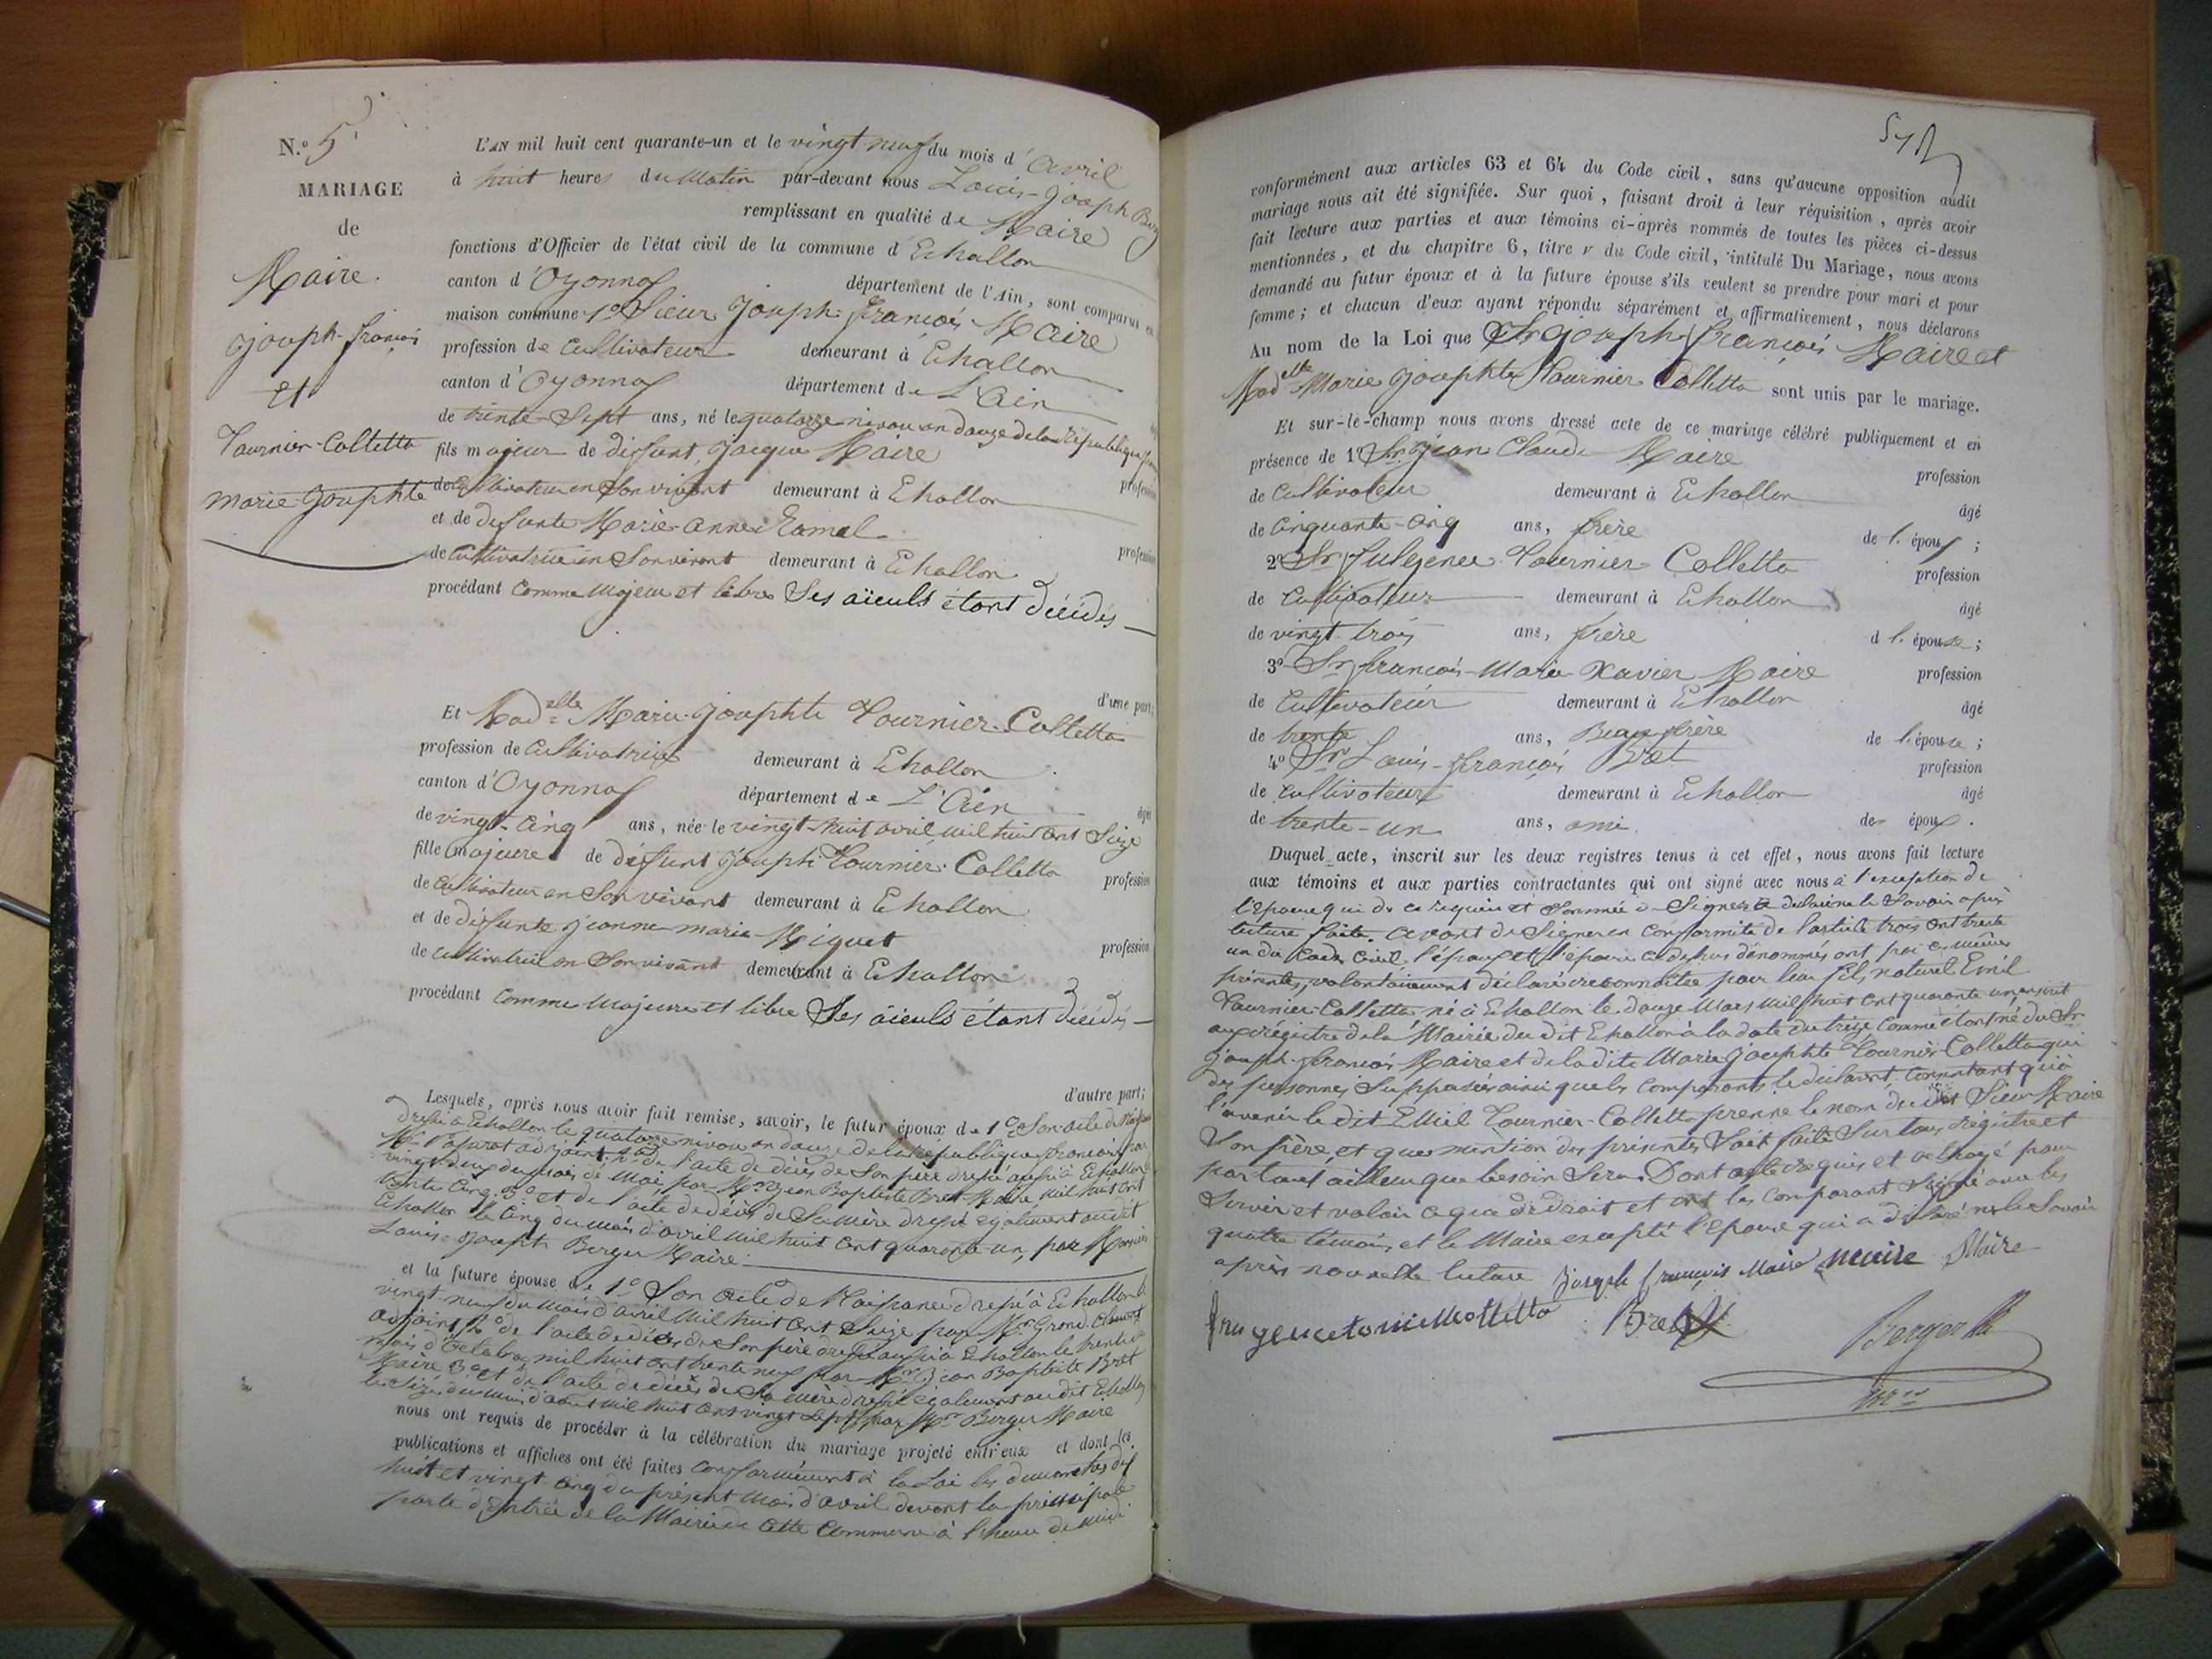 N.o 5
MARIAGE
de
Maire
joseph-françois
et
Tournier-Colletta
marie-josephte
L'AN mil huit cent quarante-un et le vingt-neuf du mois d'avril
à huit heures du matin par-devant nous Louis-joseph Berger
remplissant en qualité de Maire
fonctions d'Officier de l'état civil de la commune d'Echallon
canton d'Oyonnax département de l'Ain, sont comparus en
maison commune 1o Sieur joseph françois Maire
profession de Cultivateur demeurant à Echallon
canton d'Oyonnax département de L'Ain
de trente-Sept ans, né le quatorze nivose an douze de la République
fils majeur de diffunt jacque Maire profession
de Cultivateur en Son vivant demeurant à Echallon
et de defunte Marie-anne Ramel profession
de Cultivatrice en Son vivant demeurant à Echallon
procédant comme Majeur et libre Ses aïeuls étant décédés
d'une part;
Et Madelle Marie-josephte Tournier-Colletta
profession de Cultivatrice demeurant à Echallon
canton d'Oyonnax département de L'Ain
de vingt-cinq ans, née le vingt-huit avril mil huit cent Seize
fille majeure de deffunt joseph Tournier-Colletta profession
de Cultivateur en Son vivant demeurant à Echallon
et de diffunte jeanne-marie Miguet profession
de cultivatrice en Son vivant demeurant à Echallon
procédant comme majeure et libre Ses aïeuls étant décédés
d'autre part;
Lesquels, après nous avoir fait remise, savoir, le futur époux de 1o Son acte de Naissance
dressé à Echallon le quatorze nivose an douze de la République française par
Mr adjoint 2o de l'acte de décès de Son père dressé aussi à Echallon le
vingt-deux du mois de Mai par Mr jean Baptiste Bret Maire mil huit cent
trente cinq. 3o et de l'acte de décès de Sa mère dressé également audit
Echallon le cinq du mois d'avril mil huit cent quarante-un, par Monsieur
Louis-joseph Berger Maire.
et la future épouse de 1o Son acte de Naissance dressé à Echallon le
vingt-neuf du mois d'avril mil huit cent Seize par Mr Grand-Clement
adjoint 2o de l'acte de décès de Son père dressé aussi à Echallon le trente
mois d'Octobre mil huit cent trente neuf par Mr jean Baptiste Bret
Maire 3o et de l'acte de décès de Sa mère dressé également au dit Echallon
le Seize du mois d'août mil huit cent vingt Sept par Mr Berger Maire
nous ont requis de procéder à la célébration du mariage projeté entr'eux et dont les
publications et affiches ont été faites conformément à la Loi les dimanches dix
huit et vingt cinq du présent mois d'avril devant la principale
porte d'Entrée de la Mairie de cette Commune à l'heure de midi
conformément aux articles 63 et 64 du Code civil, sans qu'aucune opposition audit
mariage nous ait été signifiée. Sur quoi, faisant droit à leur réquisition, après avoir
fait lecture aux parties et aux témoins ci-après nommés de toutes les pièces ci-dessus
mentionnées, et du chapitre 6, titre v du Code civil, intitulé Du Mariage, nous avons
demandé au futur époux et à la future épouse s'ils veulent se prendre pour mari et pour
femme; et chacun d'eux ayant répondu séparément et affirmativement, nous déclarons
Au nom de la Loi que Sr joseph françois Maire et
Madelle Marie josephte Tournier Colletta sont unis par le mariage.
Et sur-le-champ nous avons dressé acte de ce mariage célébré publiquement et en
présence de 1o Sr jean Claude Maire profession
de Cultivateur demeurant à Echallon âgé
de cinquante-cinq ans, frère de l'époux;
2o Sr Fulgence Tournier Colletta profession
de Cultivateur demeurant à Echallon âgé
de vingt trois ans, frère d l'épouse;
3o Sr françois-Marie Xavier Maire profession
de Cultivateur demeurant à Echallon âgé
de trente ans, Beau frère de l'épouse;
4o Sr Louis-françois Bret profession
de Cultivateur demeurant à Echallon âgé
de trente-un ans, ami des époux.
Duquel acte, inscrit sur les deux registres tenus à cet effet, nous avons fait lecture
aux témoins et aux parties contractantes qui ont signé avec nous à l'exception de
l'épouse qui de ce requise et Sommée de Signer a déclaré ne le Savoir après
lecture faite. avant de Signer en Conformité de l'article trois cent trente
un du Code Civil l'époux et l'épouse ci dessus dénommés ont par ces mêmes
présentes, volontairement déclaré reconnaître pour leur fils naturel Emil
Tournier-Colletta né à Echallon le douze Mars mil huit cent quarante un inscrit
aux régistre de la Mairie du dit Echallon à la date du treize comme étant né du Sr
joseph-françois Maire et de la dite Marie josephte Tournier-Colletta qui
des personnes Supposées ainsi que les comparants le déclarent, consentant qu'à
l'avenir le dit Emil Tournier-Colletta prenne le nom de dit Sieur Maire
Son père et que mention des présentes Soit faite Sur tous régistre et
partout ailleurs que besoin Sera. Dont acte requis et octroyé pour
Servir et valoir ce que de droit et ont les comparant Signé avec les
quatre témoins et le Maire excepté l'Epouse qui a déclaré ne le Savoir
après nouvelle lecture joseph françois Maire Maire Maire
Bret
Berger